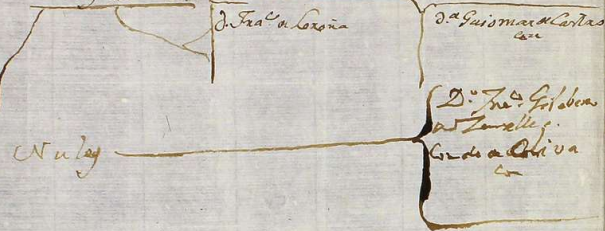 d.n Fran.co de Loroña
d.a Guiomar de Castro
con
Nules
D.n Fran.co Gilabert
de Zentelles
Conde de Oliva
con